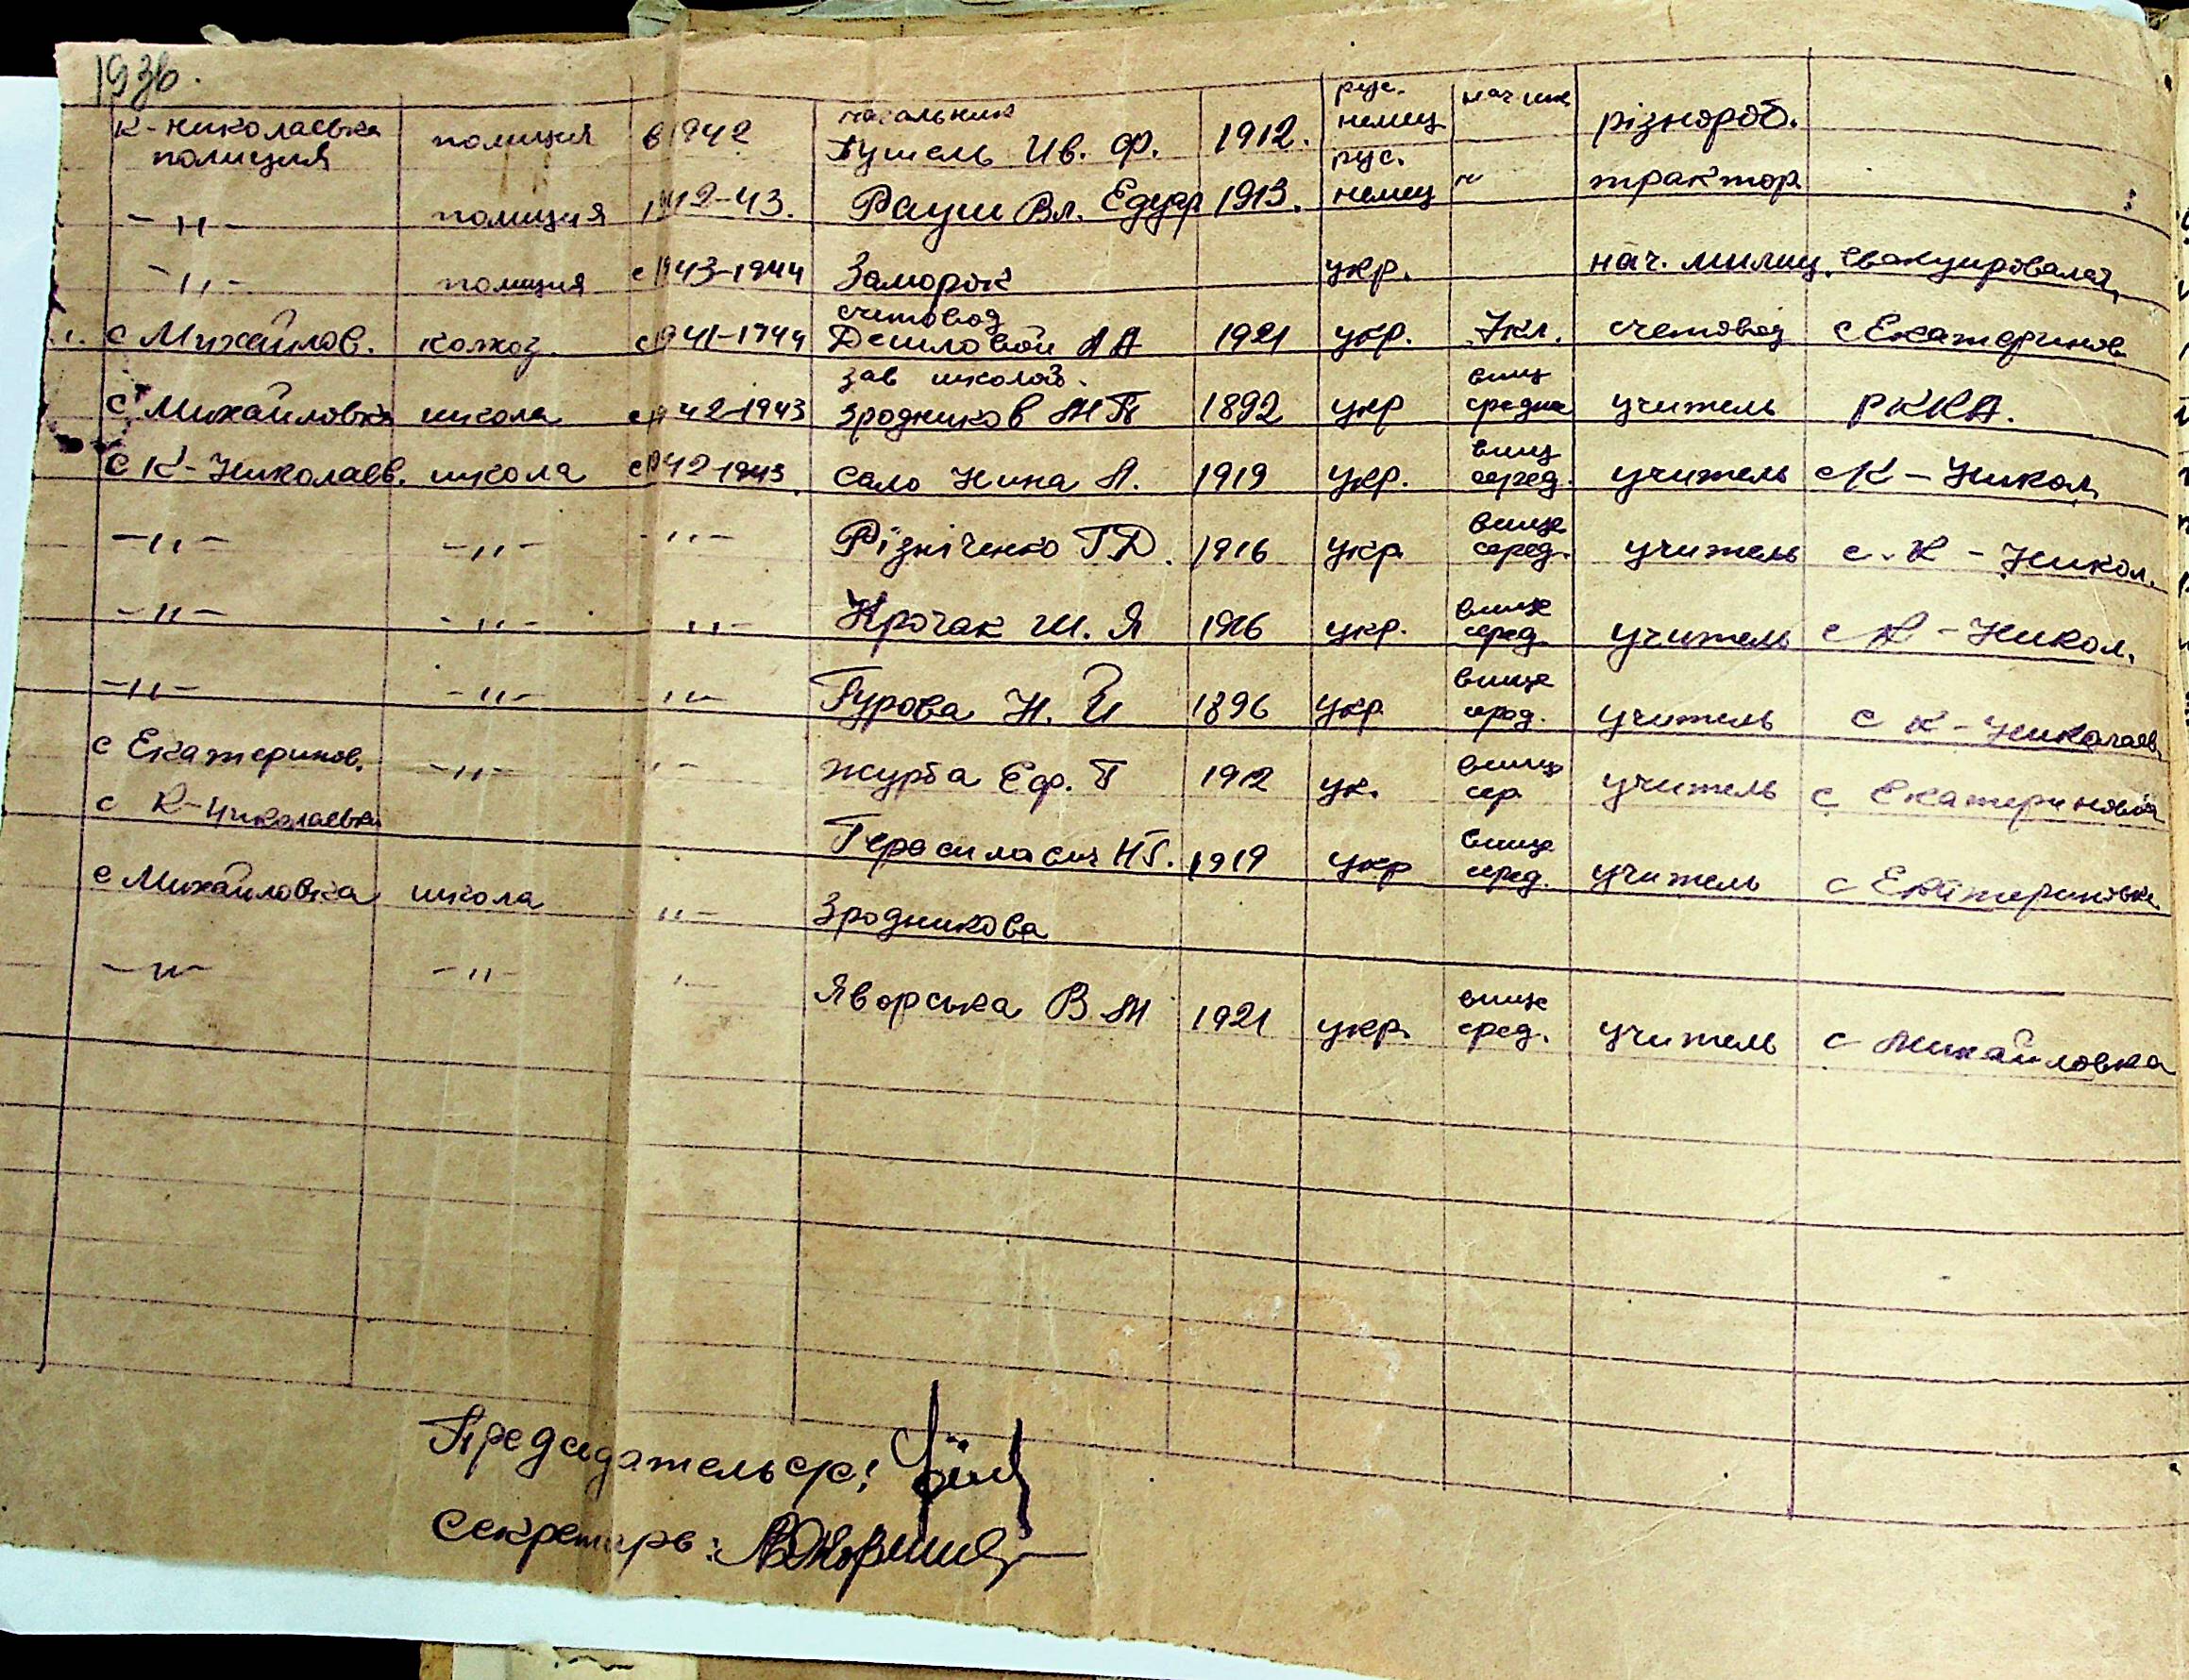 193в.
К-Николаевка полиция полиция в 1942 начальник Пушель Ив. Ф. 1912. рус. немец нач шк різнороб.
-"- полиция 1942-43. Рауш Вл. Едуар 1913. рус. немец " трактор
-"- полиция с 1943-1944 Заморок укр. нач. милиц. Евакуировалась
с Михайлов. колхоз. с 1941-1944 счетовод Дешловой А А 1921 укр. 7кл. счетовод с Екатеринов
с Михайловка школа с 1942-1943 зав школой. Зродников М П 1892 укр вищ средне учитель РККА.
с К-Николаев. школа с 1942-1943 Сало Нина А. 1919 укр. вищ серед. учитель с К-Никол.
-"- -"- -"- Різніченко Г Д. 1916 укр вище серед. учитель с. К-Никол.
-"- -"- -"- Крочак Ш. Я 1916 укр. вище серед. учитель с К-Никол.
-"- -"- -"- Гурова Н. И 1896 укр вище серед. учитель с К-Николаев.
с Екатеринов. -"- -"- Журба Еф. Г 1912 ук. вище сер учитель с Екатериновка
с К-Николаевка Герасимович Н Г. 1919 укр вище серед. учитель с Екатериновка
с Михайловка школа -"- Зродникова
-"- -"- -"- Яворська В М 1921 укр. вище сред. учитель с Михайловка
Председатель ср:
Секретарь: